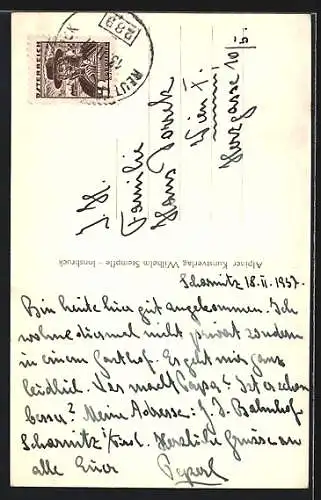 ÖSTERREICH
REUTTE
Familie
Hans
Wien X.
Herzgasse 10/5.
Alpiner Kunstverlag Wilhelm Stempfle – Innsbruck
Scharnitz 18. II. 1937.
Bin heute hier gut angekommen. Ich
wohne diesmal nicht privat sondern
in einem Gasthof. Es geht mir ganz
leidlich. Was macht Papa? Ist er schon
besser? Meine Adresse: z. Z. Bahnhof
Scharnitz i/Tirol. Herzliche Grüsse an
alle Euer Pepperl